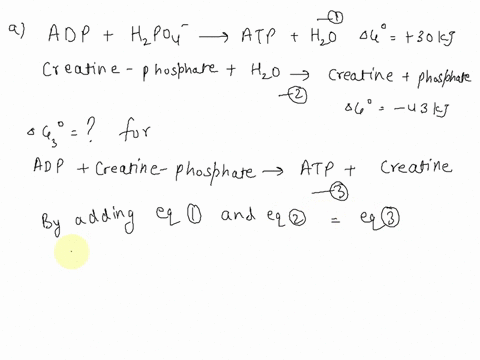 a) ADP + H₂PO₄⁻ ⟶ ATP + H₂O ① ΔG° = +30 kJ
Creatine-phosphate + H₂O → Creatine + phosphate
② ΔG° = -43 kJ
ΔG₃° = ? for
ADP + Creatine-phosphate → ATP + Creatine
③
By adding eq ① and eq ② = eq ③